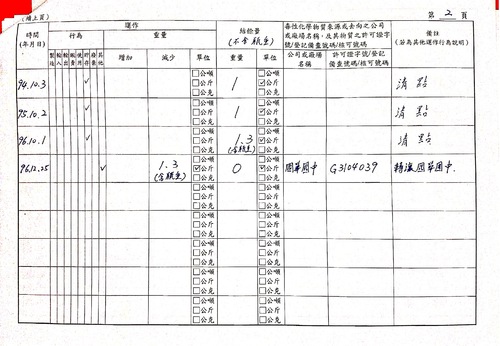 (續上頁)
第 2 頁
時間
(年月日)
運作
行為
重量
製造
輸入
輸出
販賣
使用
貯存
廢棄
其他
增加
減少
單位
結餘量
(不含瓶重)
重量
單位
毒性化學物質來源或去向之公司或廠場名稱,及其物質之許可證字號/登記備查號碼/核可號碼
公司或廠場
名稱
許可證字號/登記
備查號碼/核可號碼
備註
(若為其他運作行為說明)
94.10.3 ✓ □公噸 □公斤 □公克 1 □公噸 ☑公斤 □公克 清點
95.10.2 ✓ □公噸 □公斤 □公克 1 □公噸 ☑公斤 □公克 清點
96.10.1 ✓ □公噸 □公斤 □公克 1.3 (含瓶重) □公噸 ☑公斤 □公克 清點
96.12.25 ✓ 1.3 (含瓶重) □公噸 ☑公斤 □公克 0 □公噸 ☑公斤 □公克 國華國中 G3104039 轉讓國華國中.
□公噸 □公斤 □公克 □公噸 □公斤 □公克
□公噸 □公斤 □公克 □公噸 □公斤 □公克
□公噸 □公斤 □公克 □公噸 □公斤 □公克
□公噸 □公斤 □公克 □公噸 □公斤 □公克
□公噸 □公斤 □公克 □公噸 □公斤 □公克